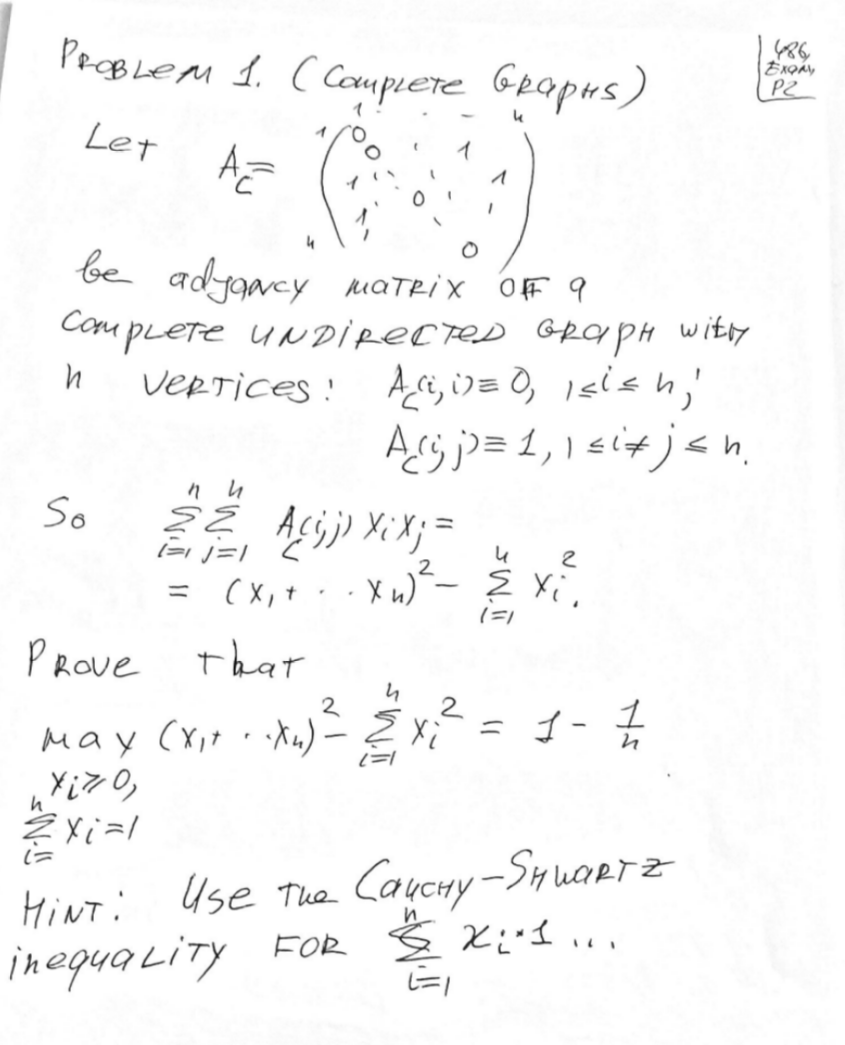 486,
Exam,
P2
PROBLEM 1. (Complete Graphs)
1 . . - n
Let A_C = 1 ( 0 0 1 1 0 1 1 0 ) n
be adjancy MATRIX OF a
Complete UNDIRECTED GRAPH with
n VERTICES: A_C(i,i) ≡ 0, 1≤i≤n;
A_C(i,j) ≡ 1, 1≤i≠j≤n.
So ∑_{i=1}^{n} ∑_{j=1}^{n} A_C(i,j) x_i x_j =
= (x_1+ . . x_n)^2 − ∑_{i=1}^{n} x_i^2.
Prove that
max (x_1+ . . x_n)^2 − ∑_{i=1}^{n} x_i^2 = 1 − 1/n
x_i ≥ 0,
∑_{i=}^{n} x_i = 1
HINT: Use The CAUCHY-SHWARTZ
inequality FOR ∑_{i=1}^{n} x_i·1 ...